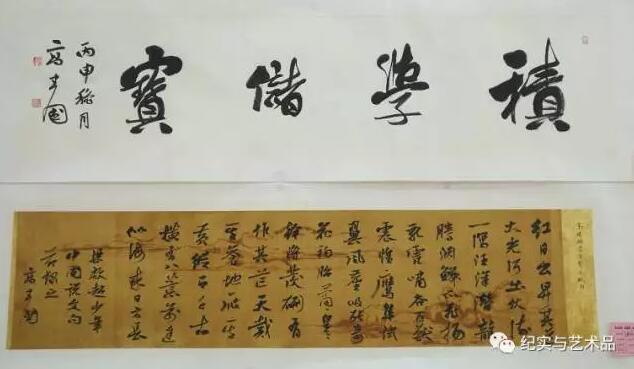 積學儲寶
丙申
紅日初昇其道
大光河出伏流
一瀉汪洋潛龍
騰淵鱗爪飛揚
乳虎嘯谷百獸
震惶鷹隼試
翼風塵吸張奇
花初胎矞矞皇皇
干將發硎有
作其芒天戴
其蒼地履其
黃縱有千古
橫有八荒前途
似海來日方長
梁啟超少年
中國說文句
纪实与艺术品